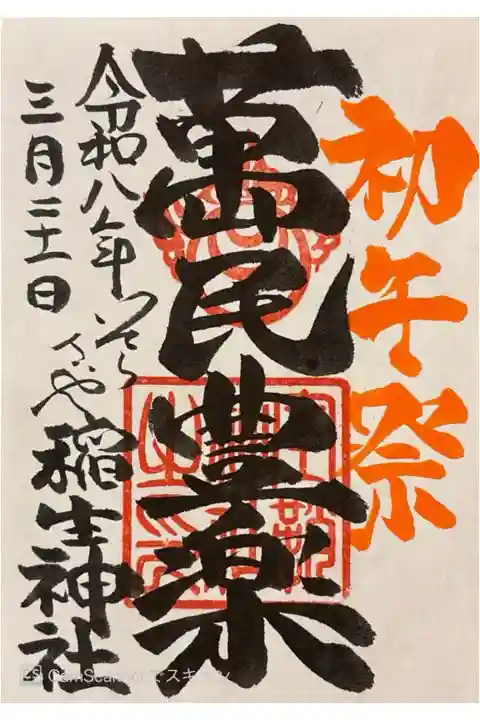 初午祭
萬民豊楽
令和八年
稲生神社
三月二十一日
CS CamScannerでスキャン